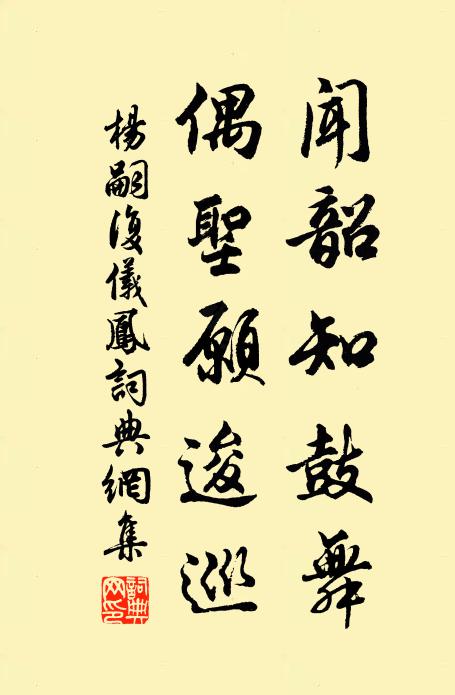 闻韶知鼓舞
偶聖願逡巡
楊嗣復儀鳳詞典網集
詞典網印